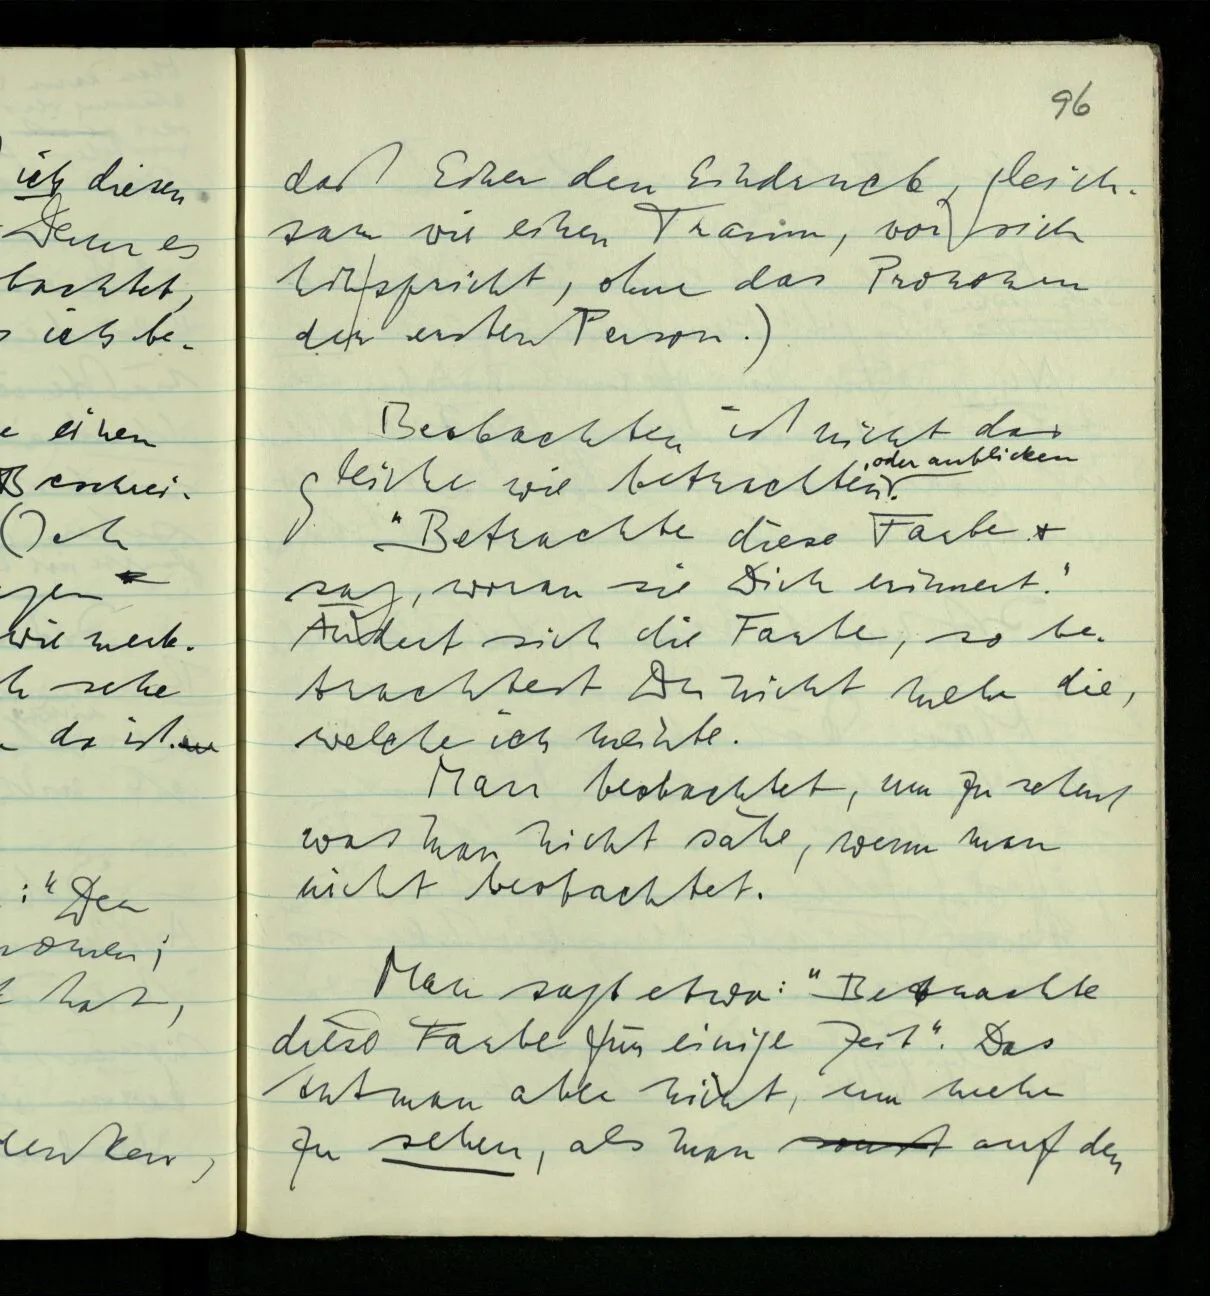 96
ich diesen
Denn es
bachtet,
ich be-
einen
Beschrei-
wie merk-
sehe
da ist.
: "Der
hat,
daß Einer den Eindruck, gleich-
sam wie einen Traum, vor sich
hinspricht, ohne das Pronomen
der ersten Person.)
Beobachten ist nicht das
gleiche wie betrachten oder anblicken.
"Betrachte diese Farbe +
sag, woran sie Dich erinnert."
Ändert sich die Farbe, so be-
trachtest Du nicht mehr die,
welche ich meinte.
Man beobachtet, um zu sehen,
was man nicht sähe, wenn man
nicht beobachtet.
Man sagt etwa: "Betrachte
diese Farbe für einige Zeit". Das
tut man aber nicht, um mehr
zu sehen, als man sonst auf den